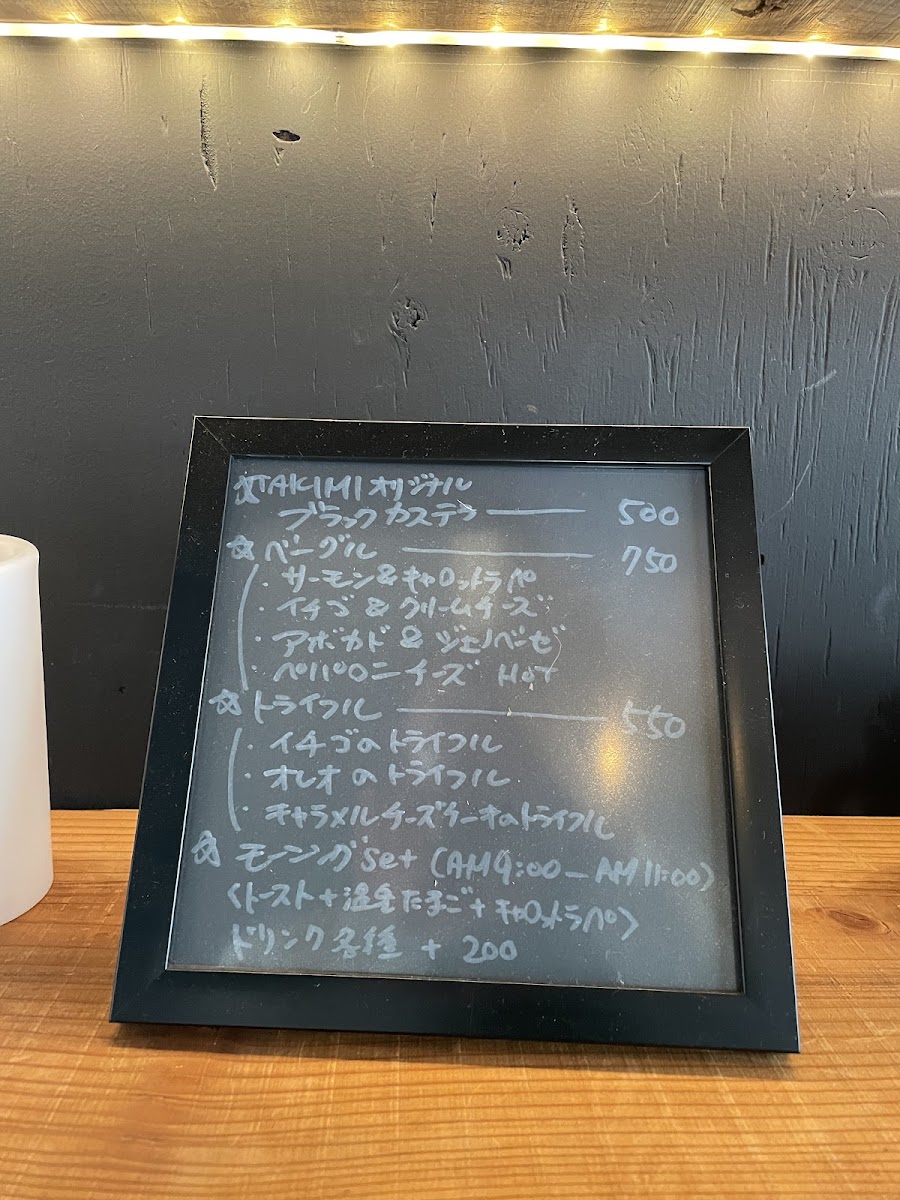 ☆TAKIMIオリジナル
ブラックカステラ 500
☆ベーグル 750
・サーモン&キャロットラペ
・イチゴ&クリームチーズ
・アボカド&ジェノベーゼ
・ペパロニチーズ HOT
☆トライフル 550
・イチゴのトライフル
・オレオのトライフル
・キャラメルチーズケーキのトライフル
☆モーニングset (AM9:00-AM11:00)
<トースト+温泉たまご+キャロットラペ>
ドリンク各種 + 200